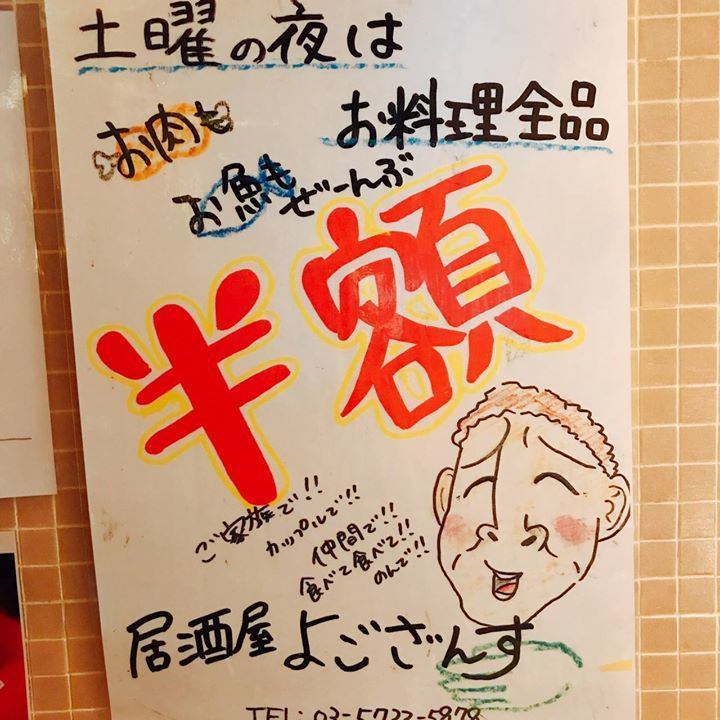 土曜の夜は
お料理全品
お肉も
お魚もぜーんぶ
半額
ご家族で!!
カップルで!!
仲間で!!
食べて食べて!!
のんで!!
居酒屋 よござんす
TEL: 03-5722-5878